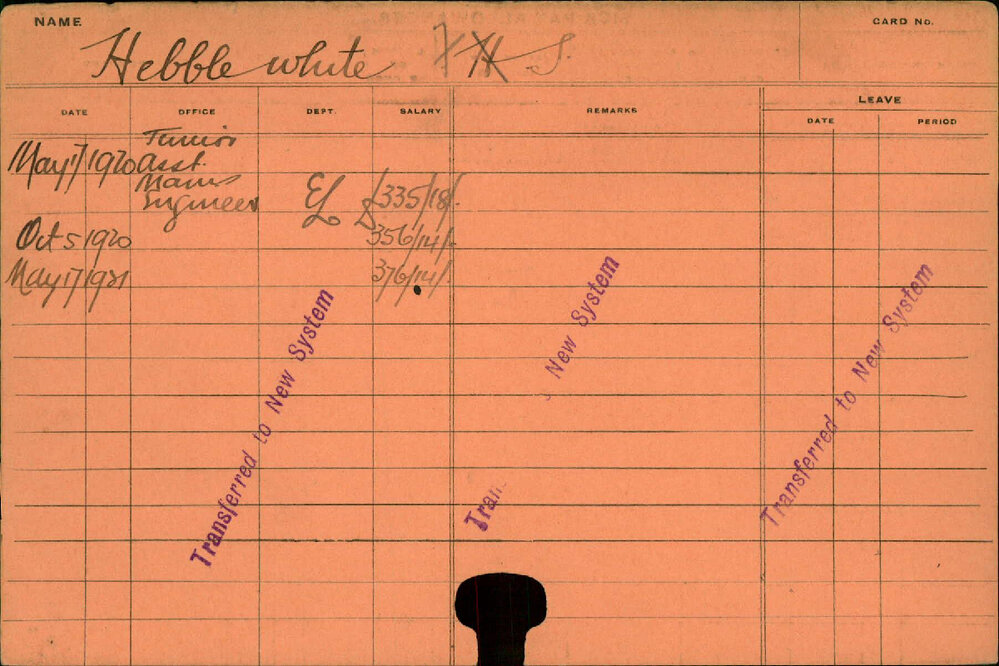 NAME
CARD No.
Hebblewhite H S.
DATE OFFICE DEPT. SALARY REMARKS LEAVE
DATE PERIOD
Junior
May 17 1920 Asst.
Mains
Engineer El £335/18/-
Oct 5 1920 356/14/-
May 17 1921 376/14/-
Transferred to New System
Tran
New System
Transferred to New System